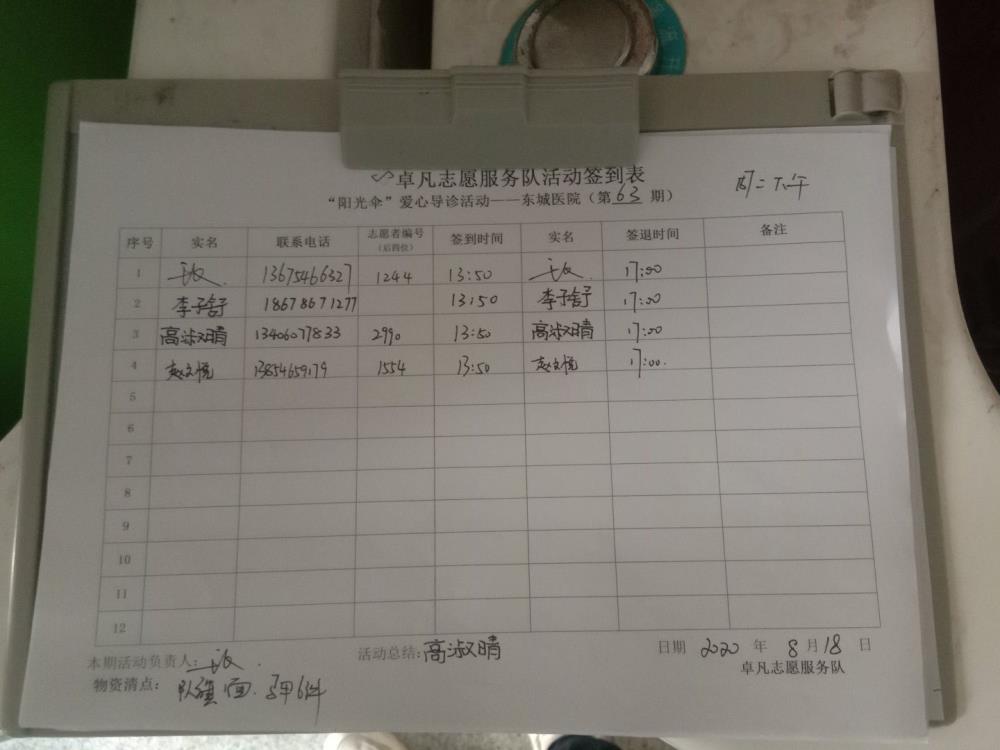 卓凡志愿服务队活动签到表
周二下午
“阳光伞”爱心导诊活动——东城医院（第63期）
序号 实名 联系电话 志愿者编号（后四位） 签到时间 实名 签退时间 备注
1 13675466327 1244 13:50 17:00
2 李子舒 18678671277 13:50 李子舒 17:00
3 高淑晴 13406077833 2990 13:50 高淑晴 17:00
4 赵文悦 13854659179 1554 13:50 赵文悦 17:00.
5
6
7
8
9
10
11
12
本期活动负责人:
活动总结:高淑晴
日期 2020 年 8 月 18 日
物资清点: 队旗1面. 马甲6件
卓凡志愿服务队